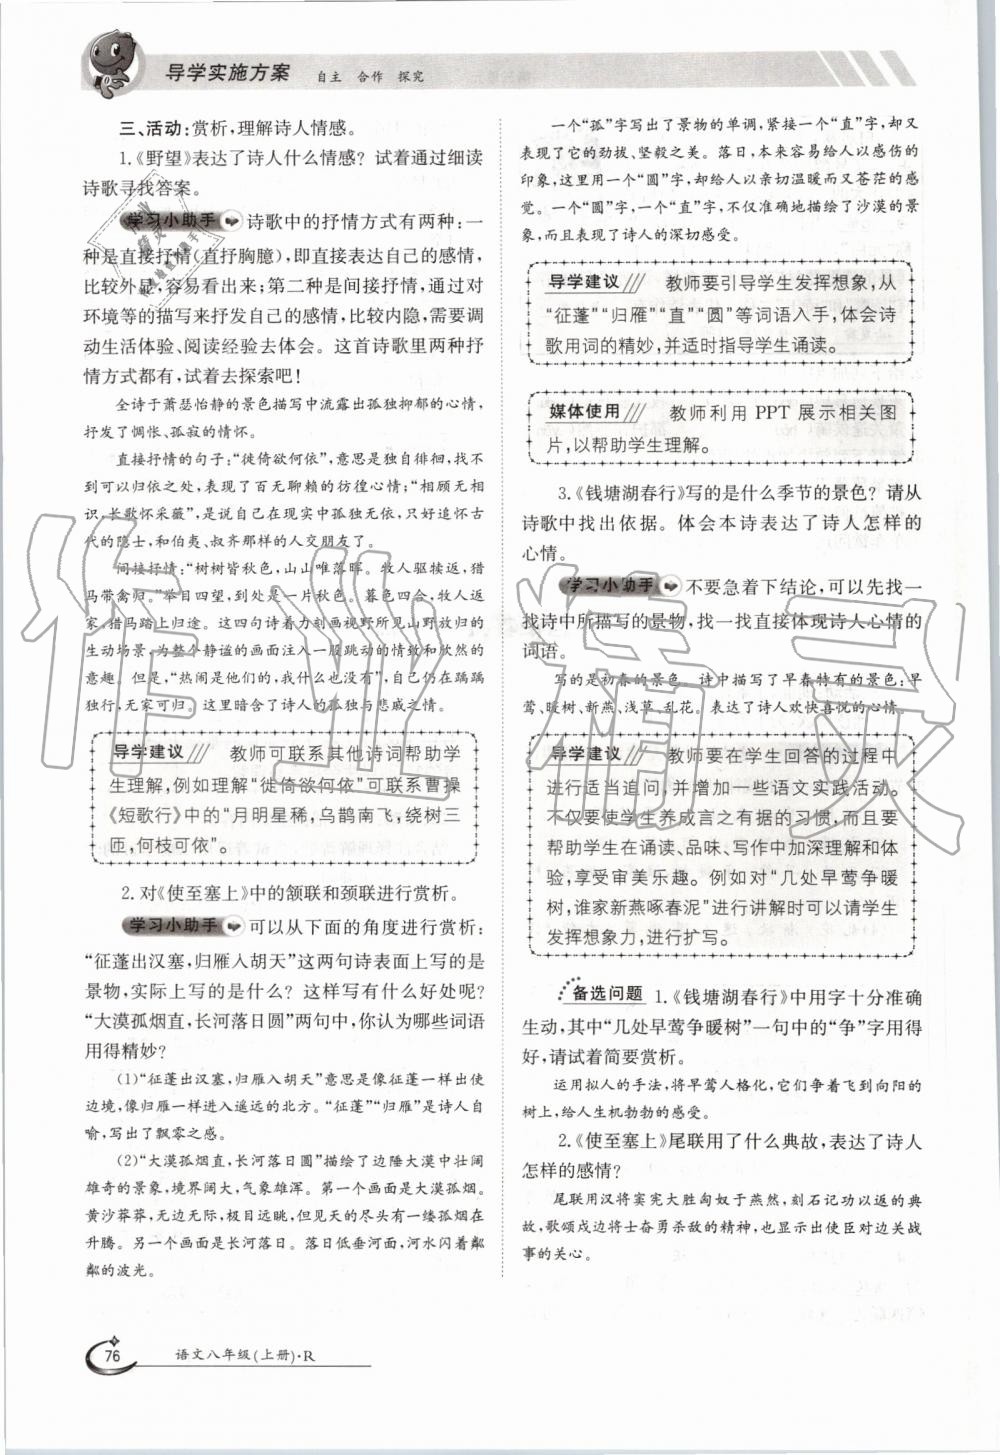 导学实施方案 自主 合作 探究
三、活动:赏析,理解诗人情感。
1.《野望》表达了诗人什么情感? 试着通过细读
诗歌寻找答案。
学习小助手 诗歌中的抒情方式有两种:一
种是直接抒情(直抒胸臆),即直接表达自己的感情,
比较外显,容易看出来;第二种是间接抒情,通过对
环境等的描写来抒发自己的感情,比较内隐,需要调
动生活体验、阅读经验去体会。这首诗歌里两种抒
情方式都有,试着去探索吧!
全诗于萧瑟怡静的景色描写中流露出孤独抑郁的心情,
抒发了惆怅、孤寂的情怀。
直接抒情的句子:“徙倚欲何依”,意思是独自徘徊,找不
到可以归依之处,表现了百无聊赖的彷徨心情;“相顾无相
识,长歌怀采薇”,是说自己在现实中孤独无依,只好追怀古
代的隐士,和伯夷、叔齐那样的人交朋友了。
间接抒情:“树树皆秋色,山山唯落晖。牧人驱犊返,猎
马带禽归。”举目四望,到处是一片秋色。暮色四合,牧人返
家,猎马踏上归途。这四句诗着力刻画视野所见山野放归的
生动场景,为整个静谧的画面注入一股跳动的情致和欣然的
意趣。但是,“热闹是他们的,我什么也没有”,自己仍在踽踽
独行,无家可归。这里暗含了诗人的孤独与悲戚之情。
导学建议 教师可联系其他诗词帮助学
生理解,例如理解“徙倚欲何依”可联系曹操
《短歌行》中的“月明星稀,乌鹊南飞,绕树三
匝,何枝可依”。
2. 对《使至塞上》中的颔联和颈联进行赏析。
学习小助手 可以从下面的角度进行赏析:
“征蓬出汉塞,归雁入胡天”这两句诗表面上写的是
景物,实际上写的是什么? 这样写有什么好处呢?
“大漠孤烟直,长河落日圆”两句中,你认为哪些词语
用得精妙?
(1)“征蓬出汉塞,归雁入胡天”意思是像征蓬一样出使
边境,像归雁一样进入遥远的北方。“征蓬”“归雁”是诗人自
喻,写出了飘零之感。
(2)“大漠孤烟直,长河落日圆”描绘了边陲大漠中壮阔
雄奇的景象,境界阔大,气象雄浑。第一个画面是大漠孤烟。
黄沙莽莽,无边无际,但见天的尽头有一缕孤烟在
升腾。另一个画面是长河落日。落日低垂河面,河水闪着粼
粼的波光。
一个“孤”字写出了景物的单调,紧接一个“直”字,却又
表现了它的劲拔、坚毅之美。落日,本来容易给人以感伤的
印象,这里用一个“圆”字,却给人以亲切温暖而又苍茫的感
觉。一个“圆”字,一个“直”字,不仅准确地描绘了沙漠的景
象,而且表现了诗人的深切感受。
导学建议 教师要引导学生发挥想象,从
“征蓬”“归雁”“直”“圆”等词语入手,体会诗
歌用词的精妙,并适时指导学生诵读。
媒体使用 教师利用 PPT 展示相关图
片,以帮助学生理解。
3.《钱塘湖春行》写的是什么季节的景色? 请从
诗歌中找出依据。体会本诗表达了诗人怎样的
心情。
学习小助手 不要急着下结论,可以先找一
找诗中所描写的景物,找一找直接体现诗人心情的
词语。
写的是初春的景色。诗中描写了早春特有的景色:早
莺、暖树、新燕、浅草、乱花。表达了诗人欢快喜悦的心情。
导学建议 教师要在学生回答的过程中
进行适当追问,并增加一些语文实践活动。
不仅要使学生养成言之有据的习惯,而且要
帮助学生在诵读、品味、写作中加深理解和体
验,享受审美乐趣。例如对“几处早莺争暖
树,谁家新燕啄春泥”进行讲解时可以请学生
发挥想象力,进行扩写。
备选问题 1.《钱塘湖春行》中用字十分准确
生动,其中“几处早莺争暖树”一句中的“争”字用得
好,请试着简要赏析。
运用拟人的手法,将早莺人格化,它们争着飞到向阳的
树上,给人生机勃勃的感受。
2.《使至塞上》尾联用了什么典故,表达了诗人
怎样的感情?
尾联用汉将窦宪大胜匈奴于燕然,刻石记功以返的典
故,歌颂戍边将士奋勇杀敌的精神,也显示出使臣对边关战
事的关心。
76 语文八年级(上册)·R
作业精灵